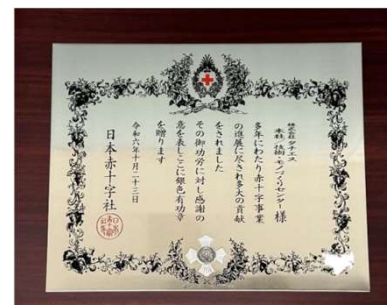 株式会社タチエス
本社・技術・モノづくりセンター様
多年にわたり赤十字事業
の進展に尽され多大の貢献
をされました
その御功労に対し感謝の
意を表しここに銀色有功章
を贈ります
令和六年十月二十三日
日本赤十字社